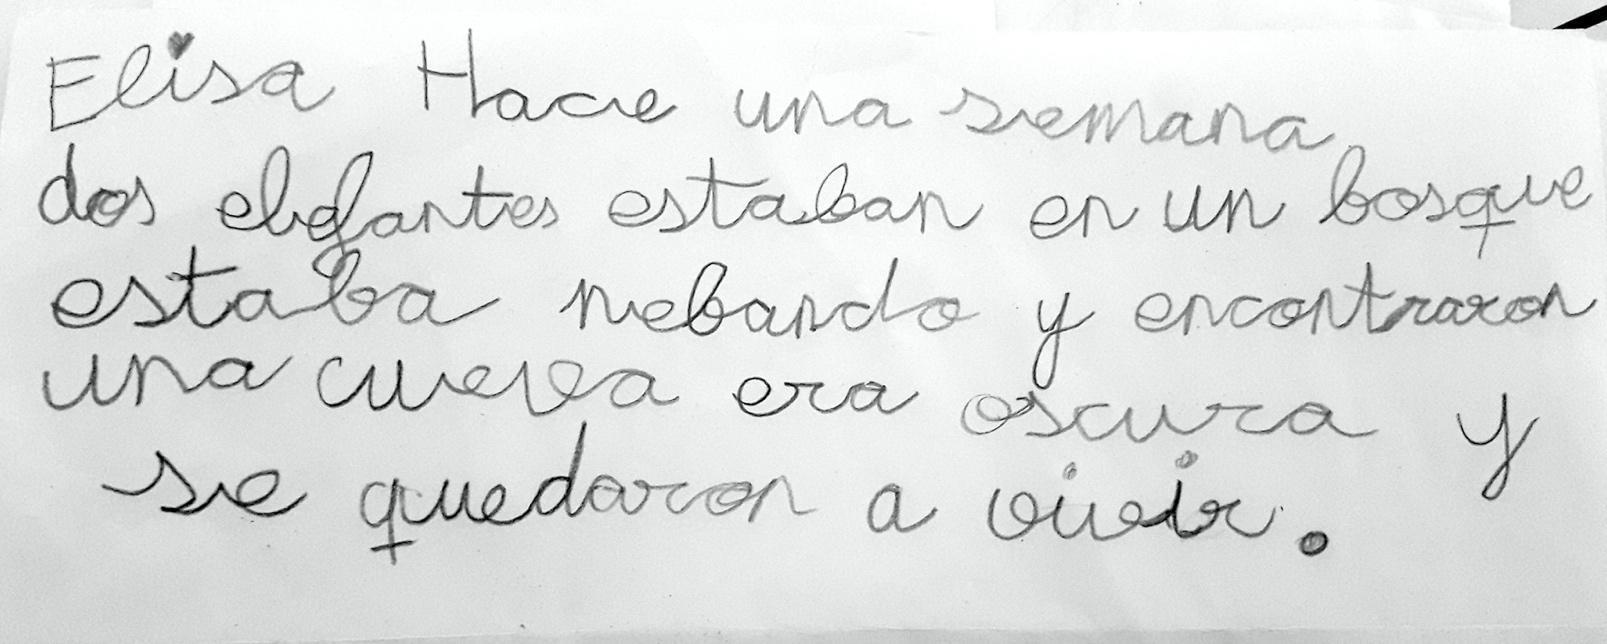 Elisa Hace una semana
dos elefantes estaban en un bosque
estaba nebando y encontraron
una cueva era oscura y
se quedaron a vivir.